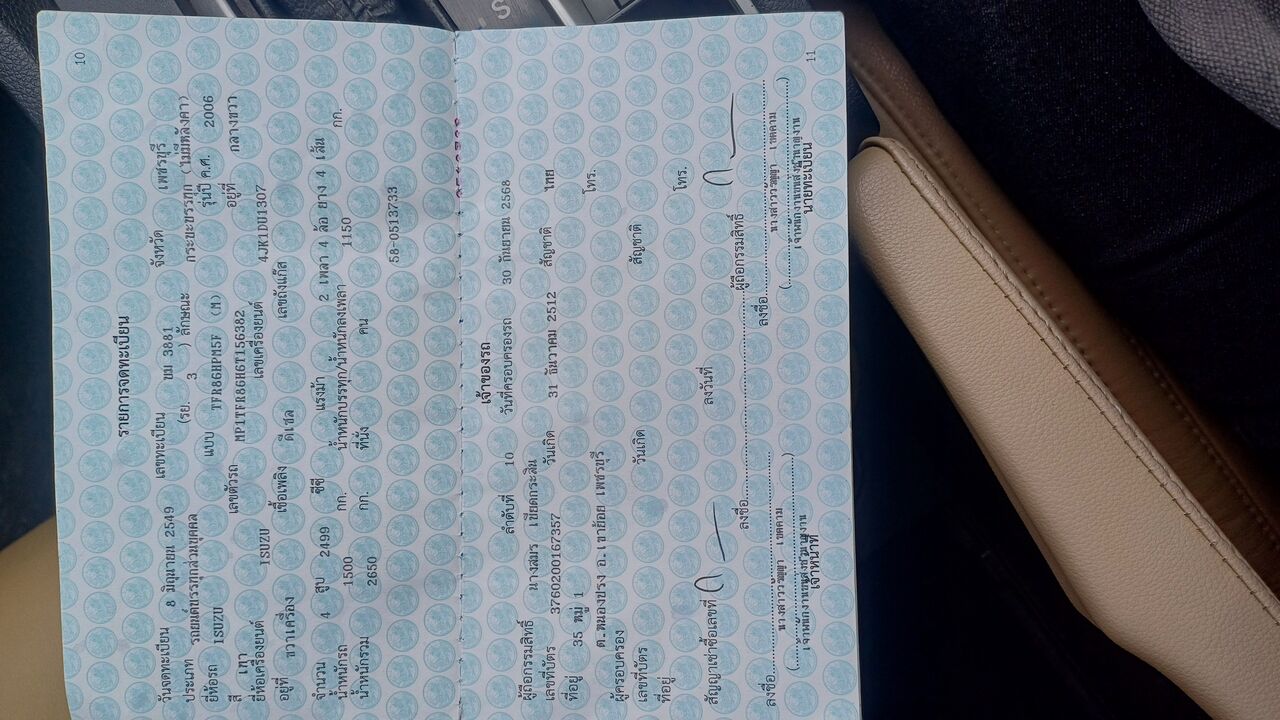 10
รายการจดทะเบียน
วันจดทะเบียน 8 มิถุนายน 2549 เลขทะเบียน ขม 3881 จังหวัด เพชรบุรี
ประเภท รถยนต์บรรทุกส่วนบุคคล (รย. 3 ) ลักษณะ กระบะบรรทุก (ไม่มีหลังคา)
ยี่ห้อรถ ISUZU แบบ TFR86HPM5F (M) รุ่นปี ค.ศ. 2006
สี เทา เลขตัวรถ MP1TFR86H6T156382 อยู่ที่ กลางขวา
ยี่ห้อเครื่องยนต์ ISUZU เลขเครื่องยนต์ 4JK1DU1307
อยู่ที่ ขวาเครื่อง เชื้อเพลิง ดีเซล เลขถังแก๊ส
จำนวน 4 สูบ 2499 ซีซี แรงม้า 2 เพลา 4 ล้อ ยาง 4 เส้น
น้ำหนักรถ 1500 กก. น้ำหนักบรรทุก/น้ำหนักลงเพลา 1150 กก.
น้ำหนักรวม 2650 กก. ที่นั่ง คน
58-0513733
เจ้าของรถ
ลำดับที่ 10 วันที่ครอบครองรถ 30 กันยายน 2568
ผู้ถือกรรมสิทธิ์ นางสมร เขียดกระสิน
เลขที่บัตร 3760200167357 วันเกิด 31 ธันวาคม 2512 สัญชาติ ไทย
ที่อยู่ 35 หมู่ 1 โทร.
ต.หนองปรง อ.เขาย้อย เพชรบุรี
ผู้ครอบครอง
เลขที่บัตร วันเกิด สัญชาติ
ที่อยู่ โทร.
สัญญาเช่าซื้อเลขที่ ลงวันที่
ลงชื่อ ผู้ถือกรรมสิทธิ์
ลงชื่อ ลงชื่อ
เจ้าหน้าที่ นายทะเบียน
11